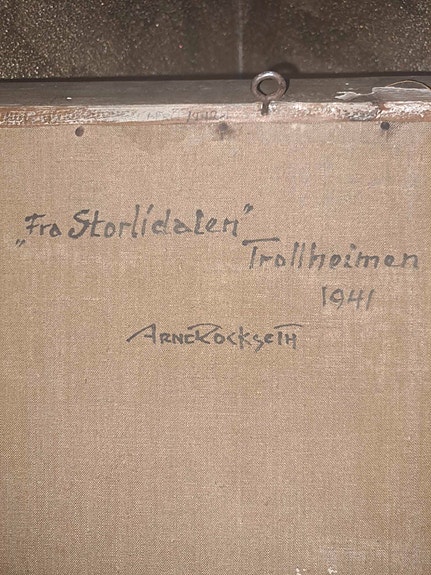 „Fra Storlidalen"
Trollheimen
1941
ARNE ROCKSETH